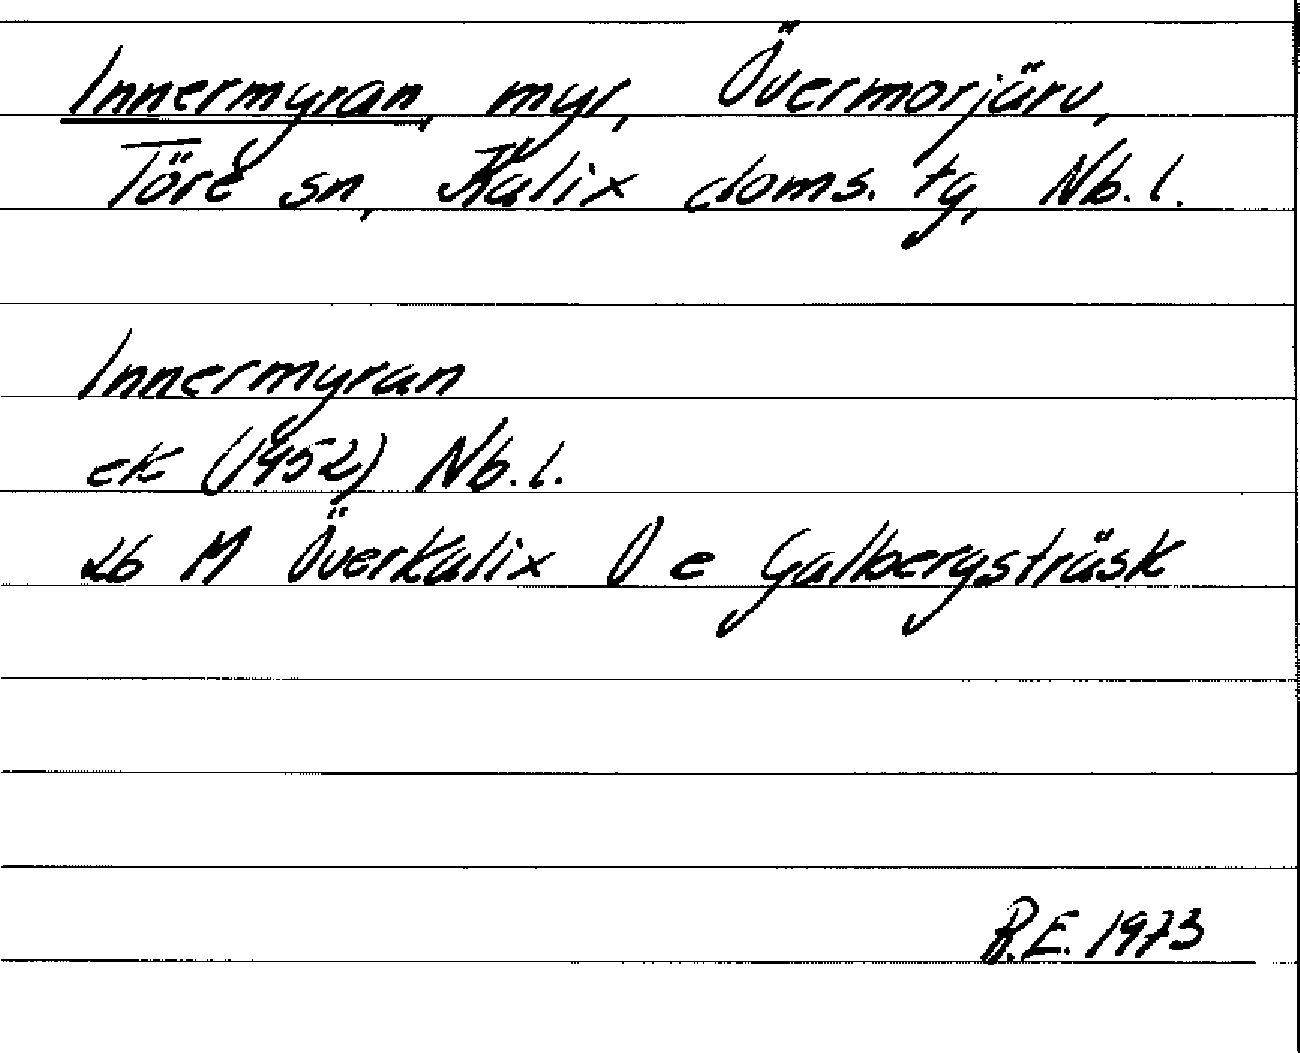 Innermyran, myr, Övermorjärv,
Töre sn, Kalix doms. tg, Nb. l.
Innermyran
ek (1952) Nb. l.
26 M Överkalix Ö e Galbergsträsk
B.E. 1973